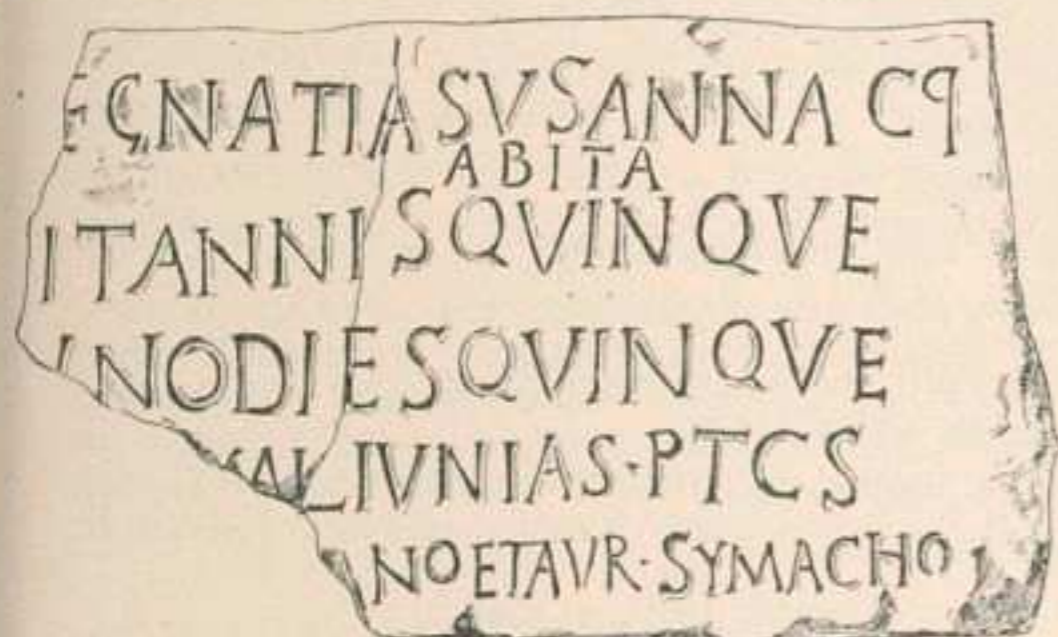 EGNATIA SVSANNA Cꟼ
ABITA
ITANNISQVINQVE
INODIESQVINQVE
KALIVNIAS·PTCS
NOETAVR·SYMACHO